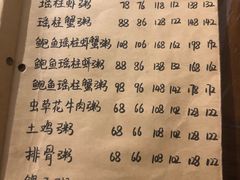 瑶柱虾粥 78 76 118 112 138 132
瑶柱蟹粥 88 86 128 122 148 142
鲍鱼瑶柱虾蟹粥 108 106 168 162 198 192
鲍鱼瑶柱虾粥 88 86 138 132 158 152
鲍鱼瑶柱蟹粥 98 96 148 142 168 162
虫草花牛肉粥 68 66 108 102 128 122
土鸡粥 68 66 108 102 128 122
排骨粥 68 66 108 102 128 122